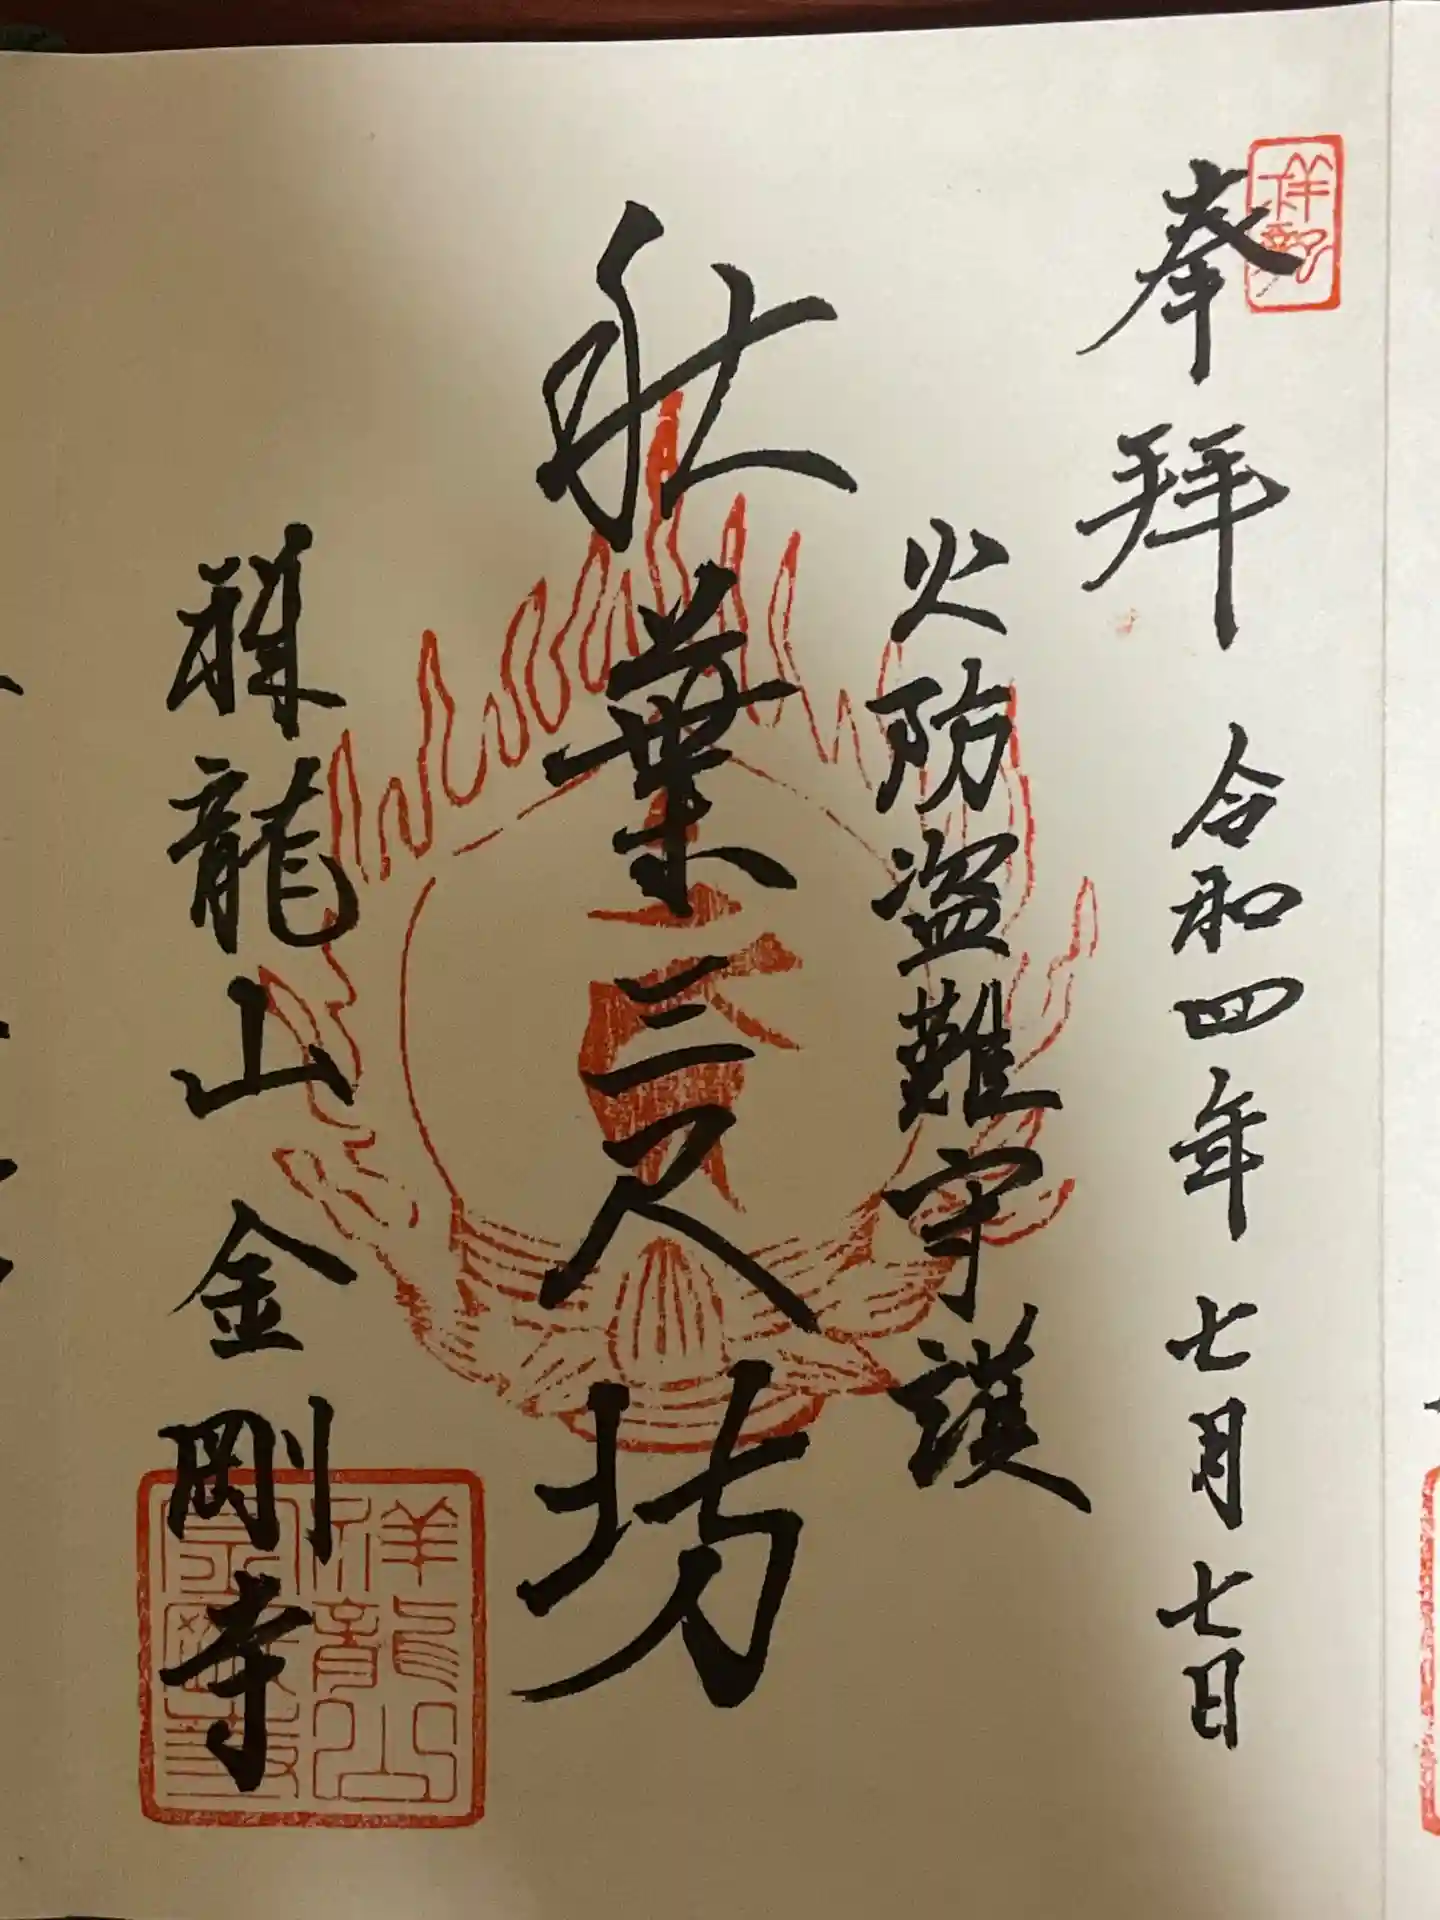 奉拝 令和四年七月七日
火防盗難守護
秋葉三尺坊
祥龍山 金剛寺
祥龍山
金剛寺